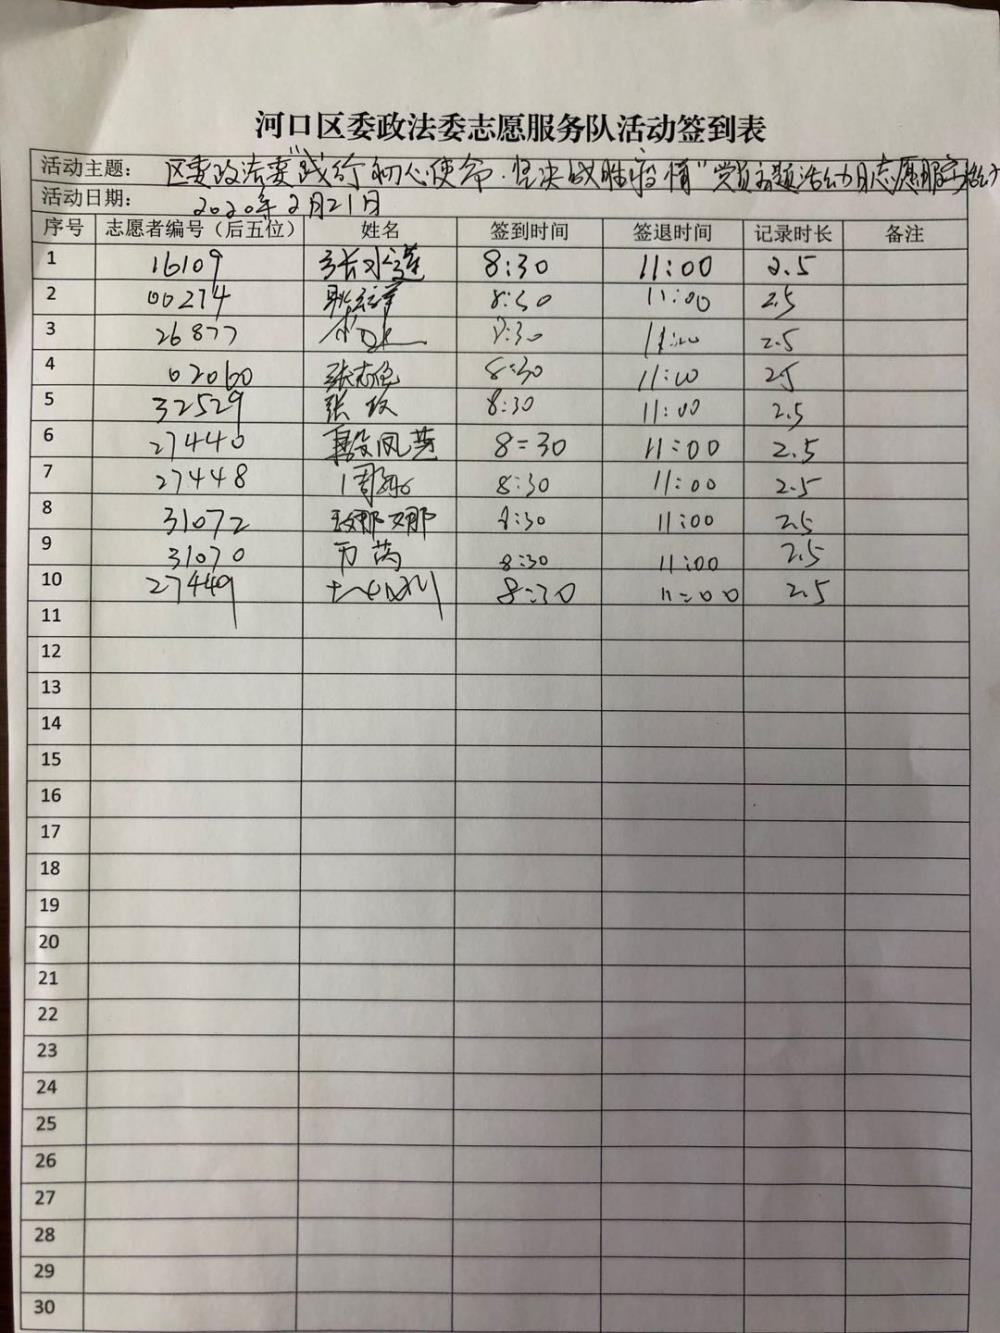 河口区委政法委志愿服务队活动签到表
活动主题： 区委政法委"践行初心使命·坚决战胜疫情"党员主题活动日志愿服务活动
活动日期： 2020年2月21日
序号 志愿者编号（后五位） 姓名 签到时间 签退时间 记录时长 备注
1 16109 8:30 11:00 2.5
2 00274 8:30 11:00 2.5
3 26877 8:30 11:00 2.5
4 02060 张志俭 8:30 11:00 25
5 32529 张 8:30 11:00 2.5
6 27440 凤英 8=30 11:00 2.5
7 27448 周 8:30 11:00 2.5
8 31072 8:30 11:00 2.5
9 31070 万芮 8:30 11:00 2.5
10 27449 8:30 11:00 2.5
11
12
13
14
15
16
17
18
19
20
21
22
23
24
25
26
27
28
29
30